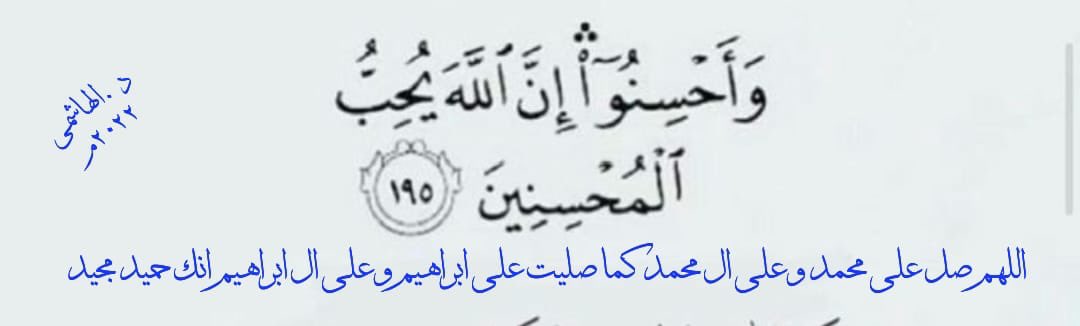 وَأَحْسِنُوٓا۟ ۛ إِنَّ ٱللَّهَ يُحِبُّ
ٱلْمُحْسِنِينَ ١٩٥
د.الهاشمي
٢٠٢٢م
اللهم صل على محمد وعلى ال محمد كما صليت على ابراهيم وعلى ال ابراهيم انك حميد مجيد